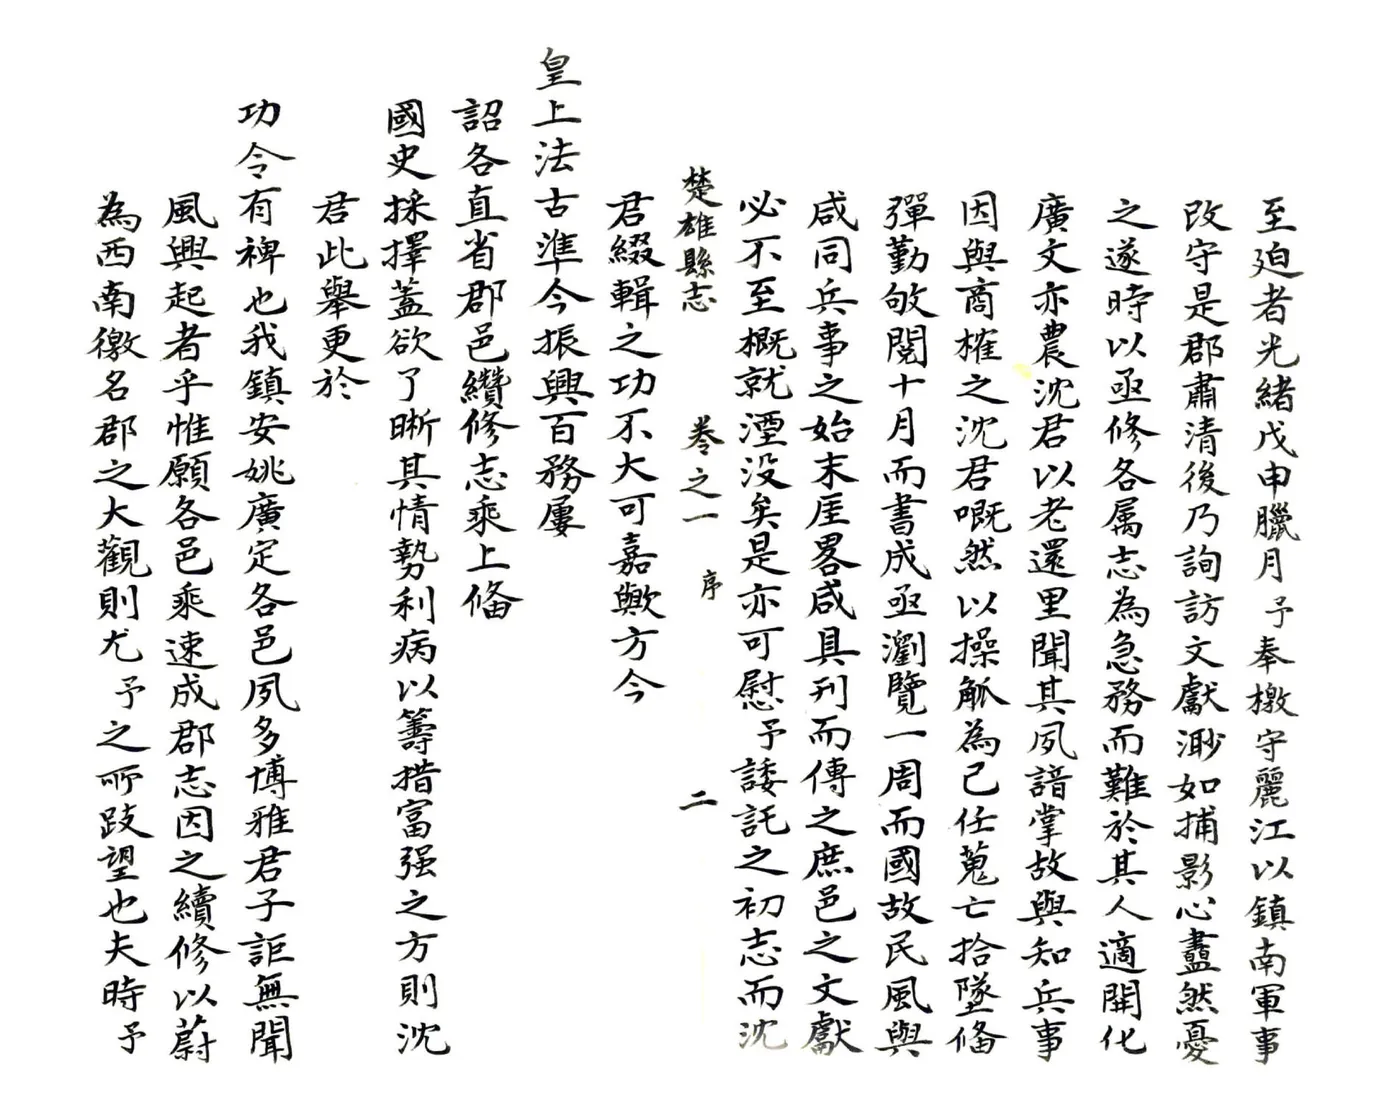 至迫者光緒戊申臘月予奉檄守麗江以鎮南軍事
改守是郡肅清後乃詢訪文獻渺如捕影心盡然憂
之遂時以亟修各属志為急務而難於其人適開化
廣文亦農沈君以老還里聞其夙諳掌故與知兵事
因與商榷之沈君嘅然以操觚為己任蒐亡拾墜俻
彈勤敂閱十月而書成亟瀏覽一周而國故民風與
咸同兵事之始末厓畧咸具刊而傳之庶邑之文獻
必不至概就湮没矣是亦可慰予諉託之初志而沈
楚雄縣志 卷之一 序 二
君綴輯之功不大可嘉歟方今
皇上法古準今振興百務屢
詔各直省郡邑纘修志乘上俻
國史採擇蓋欲了晰其情勢利病以籌措富强之方則沈
君此舉更於
功令有裨也我鎮安姚廣定各邑夙多博雅君子詎無聞
風興起者乎惟願各邑乘速成郡志因之續修以蔚
為西南徼名郡之大觀則尤予之所跂望也夫時予